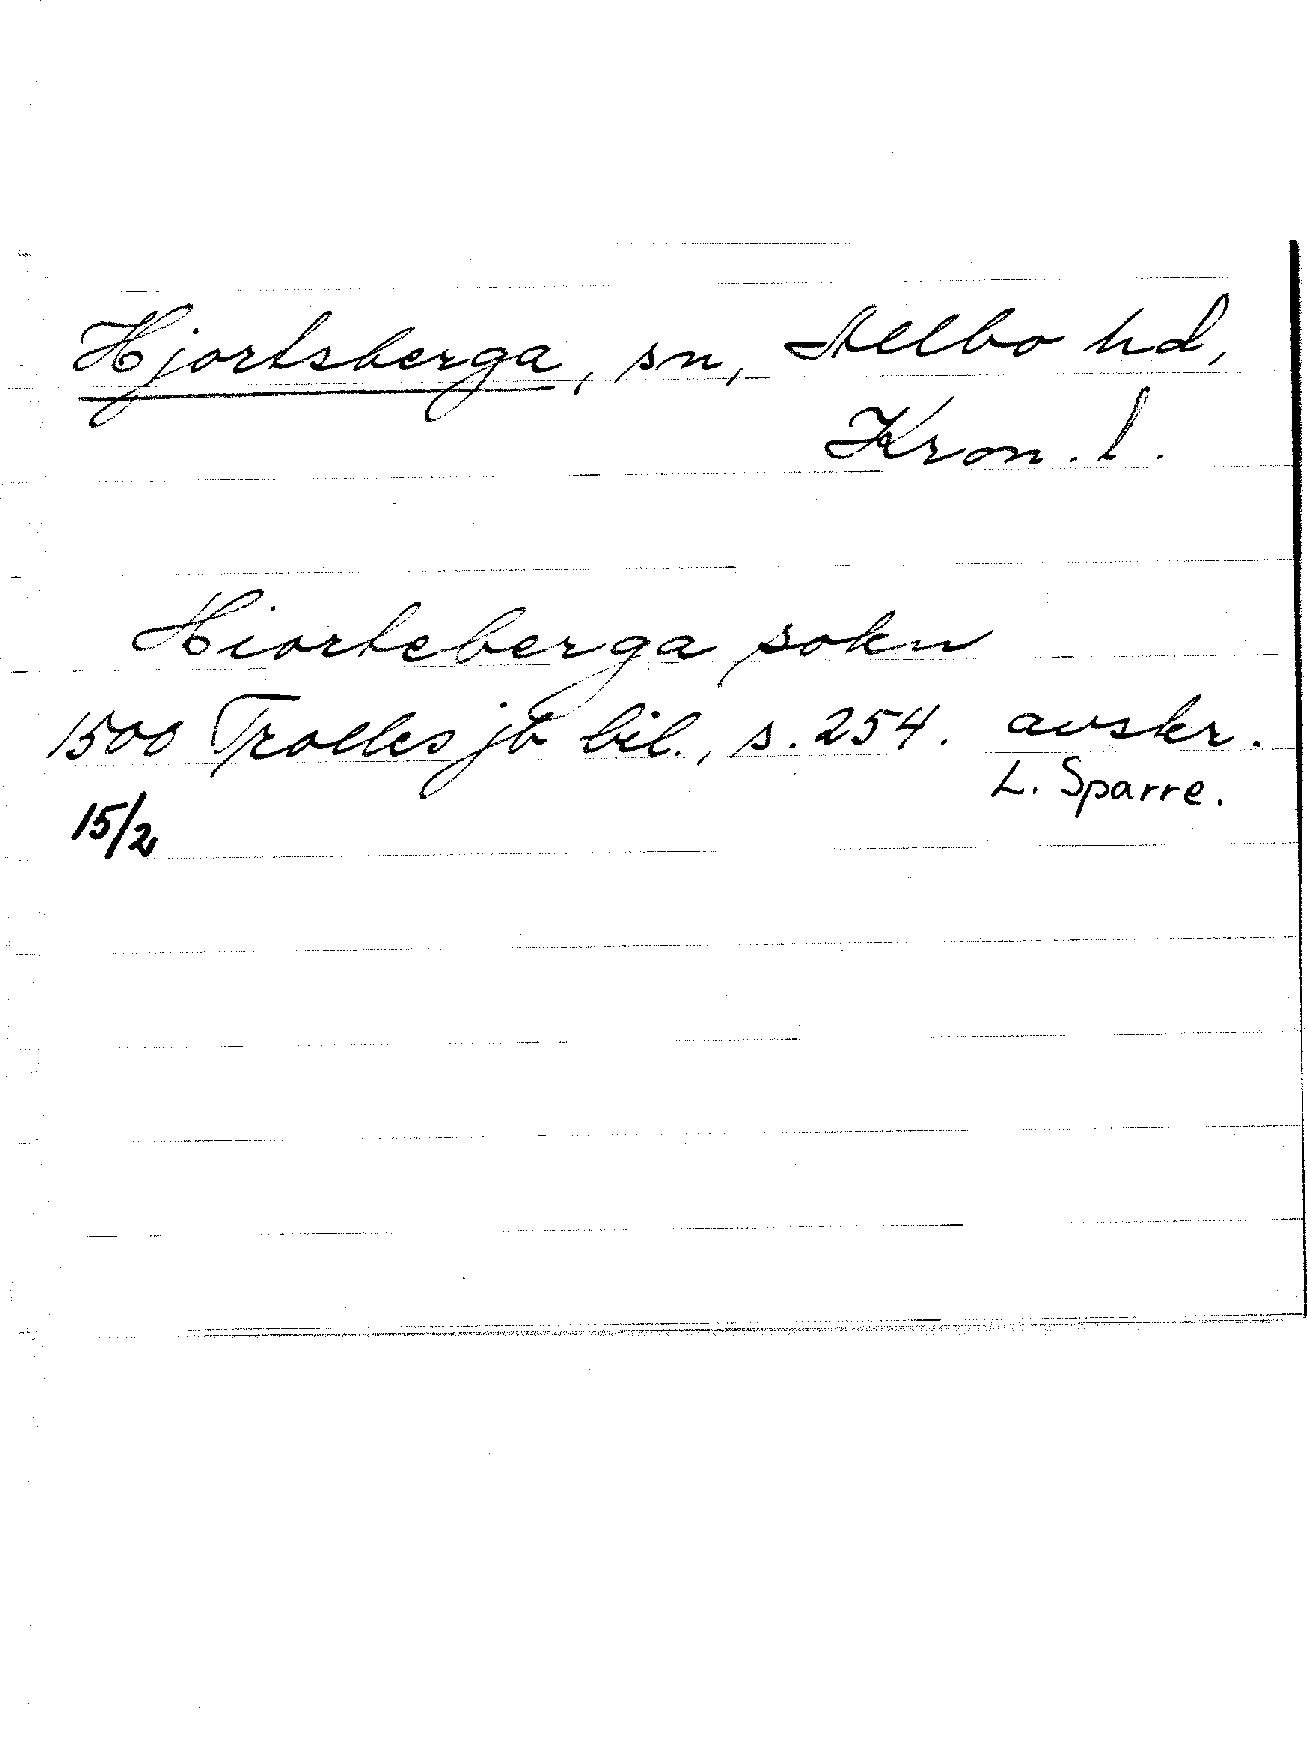 Hjortsberga, sn, Allbo hd,
Kron. l.
Hiorteberga sokn
1500 Trolles jb bil., s. 254. avskr.
L. Sparre.
15/2